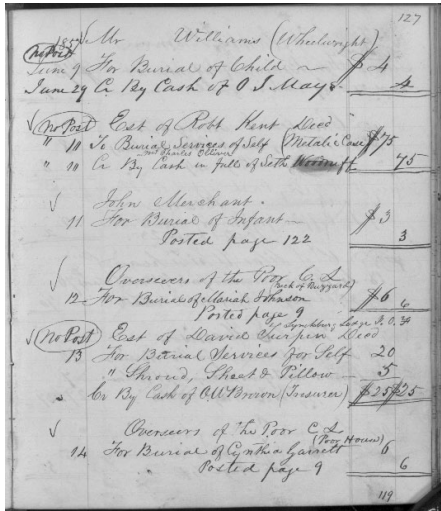 127
1857 Mr Williams (Wheelwright)
No Post
June 9 For Burial of Child $4
June 29 Cr By Cash of O J May 4
No Post Est of Robt Kent Decd
" 10 To Burial Services of Self (Metalic Case) $75
" 10 Cr By Cash in full of Seth Woodruff 75
John Merchant
11 For Burial of Infant $3
3
Posted page 122
Overseers of the Poor C. L.
12 For Burial of Mariah Johnson $6 6
Posted page 9
Lynchburg Lodge I. O.
No Post Est of David Turpin Decd
13 For Burial Services for Self 20
" Shroud, Sheet & Pillow 5
Cr By Cash of (Treasurer) $25 $25
Overseers of the Poor C. L.
(Poor House)
14 For Burial of Cynthia Garrett 6
Posted page 9 6
119